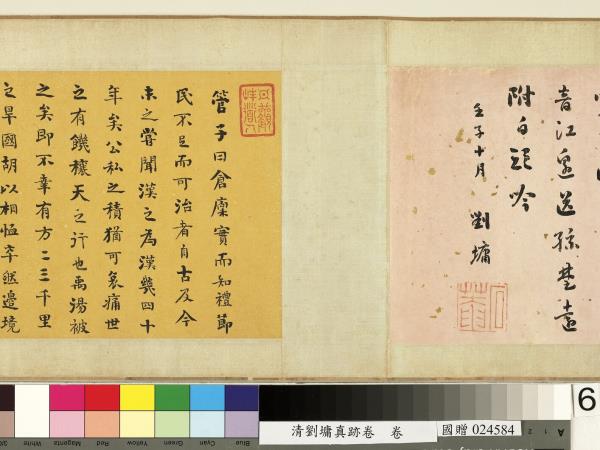 音江邊送孫楚遠
壬子十月
劉墉
管子曰倉廩實而知禮節
民不足而可治者自古及今
未之嘗聞漢之為漢幾四十
年矣公私之積猶可哀痛世
之有饑穰天之行也禹湯被
之矣即不幸有方二三千里
之旱國胡以相恤卒然邊境
Blue Cyan Green Yellow Red Magenta White
清劉墉真跡卷 卷
國贈 024584
6